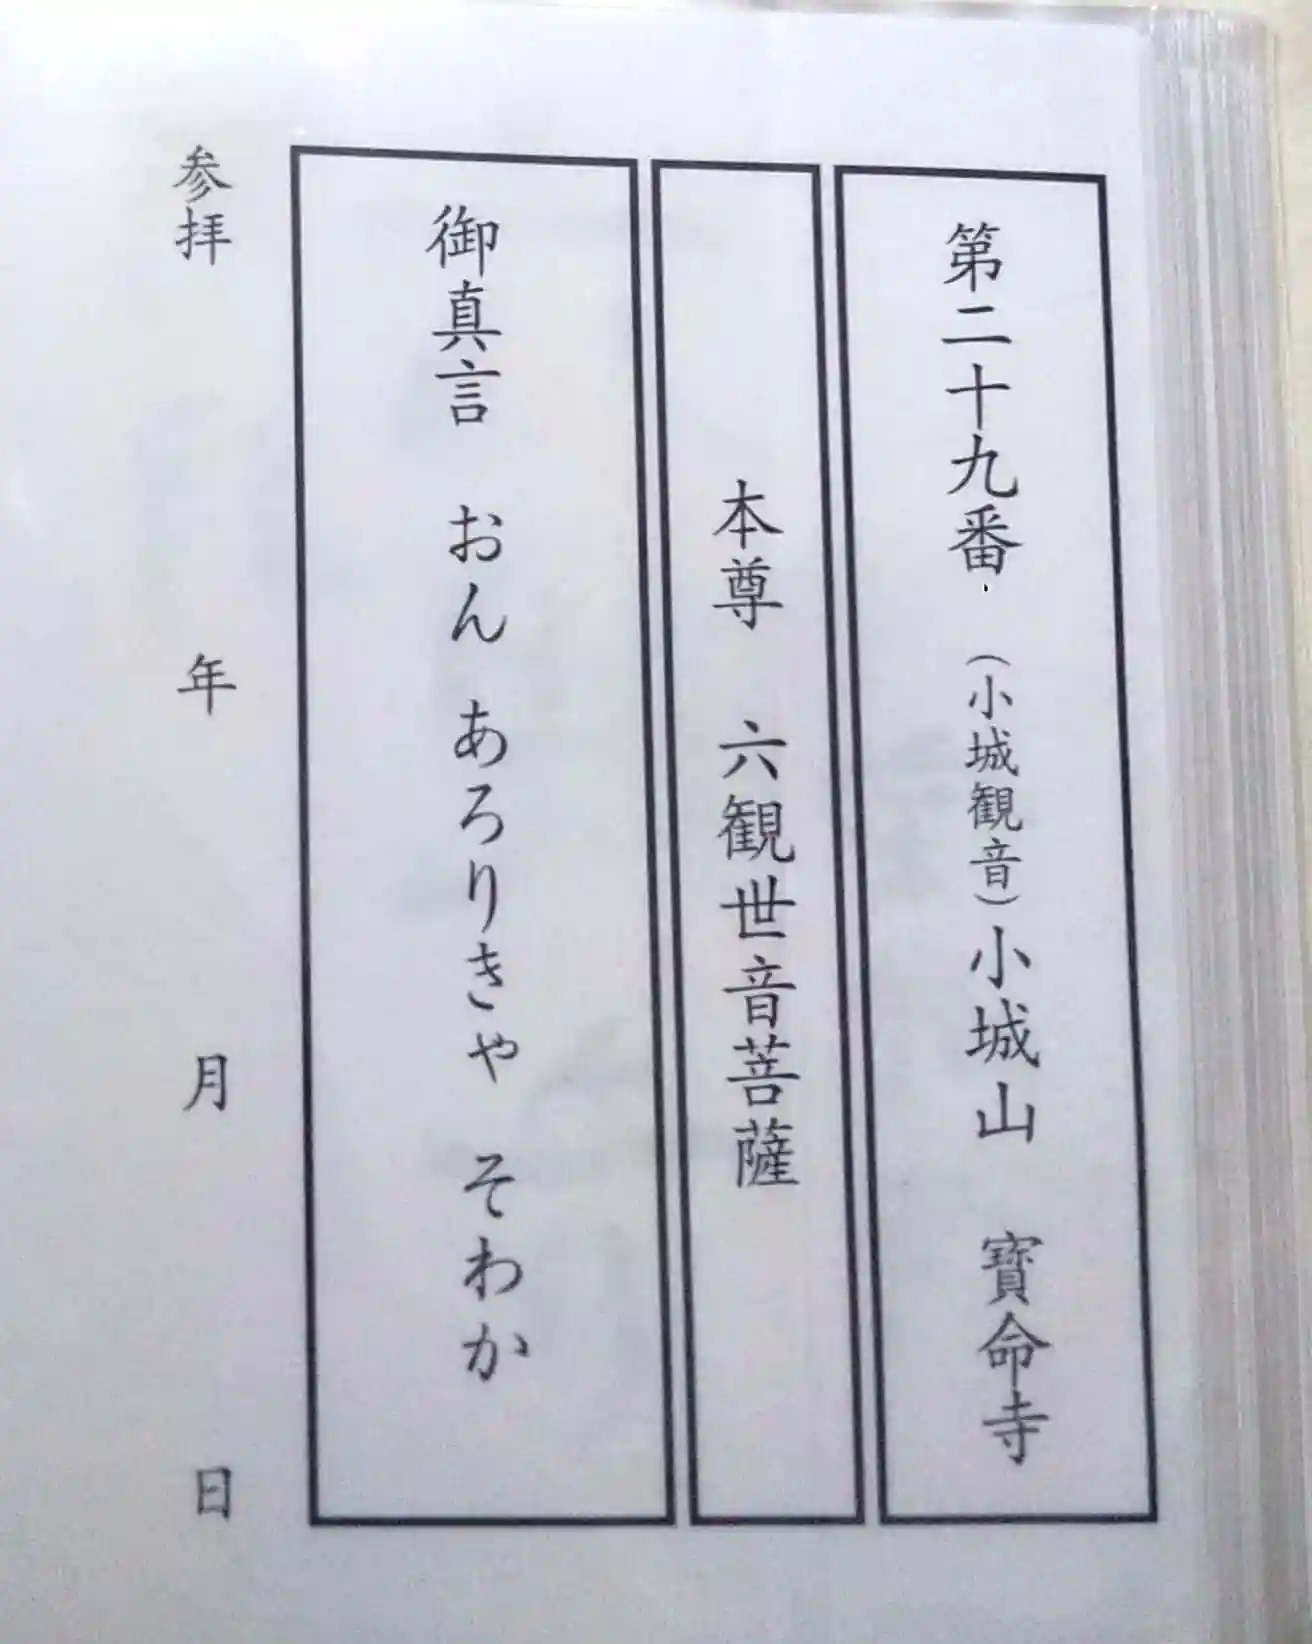 第二十九番 （小城観音）小城山 寶命寺
本尊 六観世音菩薩
御真言 おん あろりきゃ そわか
参拝 年 月 日